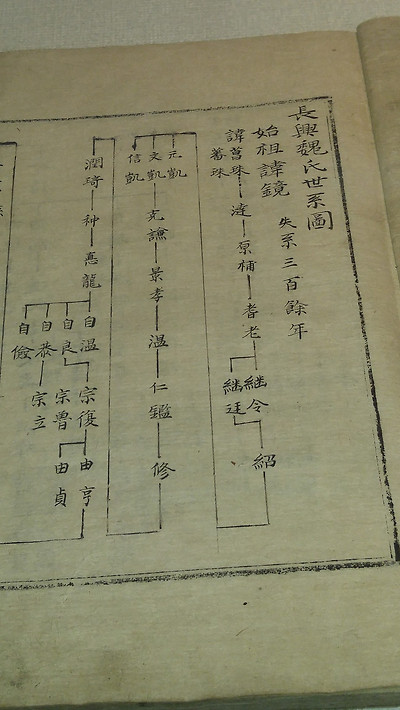 長興魏氏世系圖
始祖諱鏡 失系三百餘年
諱菖珠 漣 原桶 耆老 繼令 紹
蕃珠 繼廷
元凱
文凱 克讜 景孝 温 仁鑑 修
信凱
潤琦 种 悳龍 自温 宗復 由亨
自良 宗魯 由貞
自恭 宗立
自儉